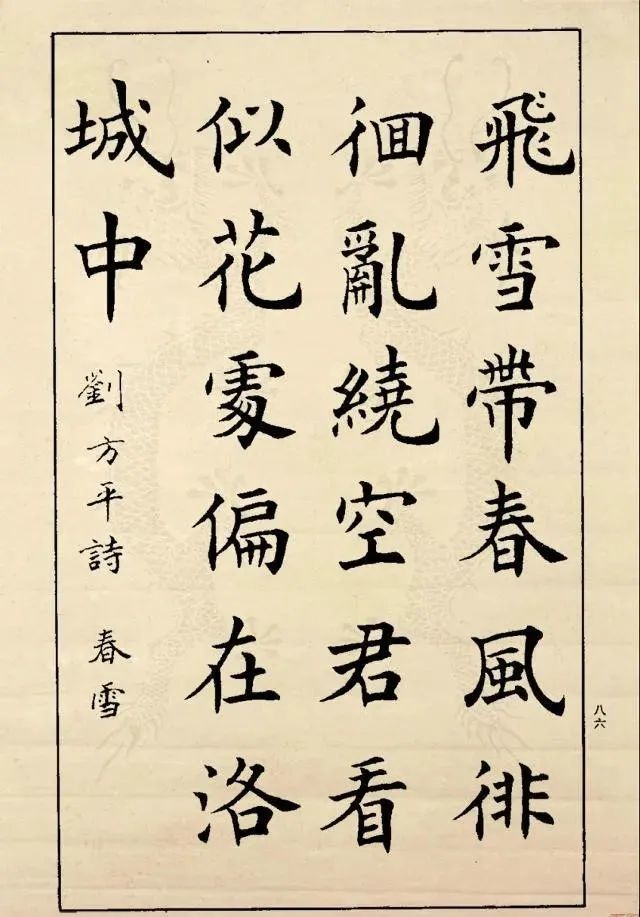 飛雪帶春風徘
徊亂繞空君看
似花處偏在洛
城中
劉方平詩 春雪
八六